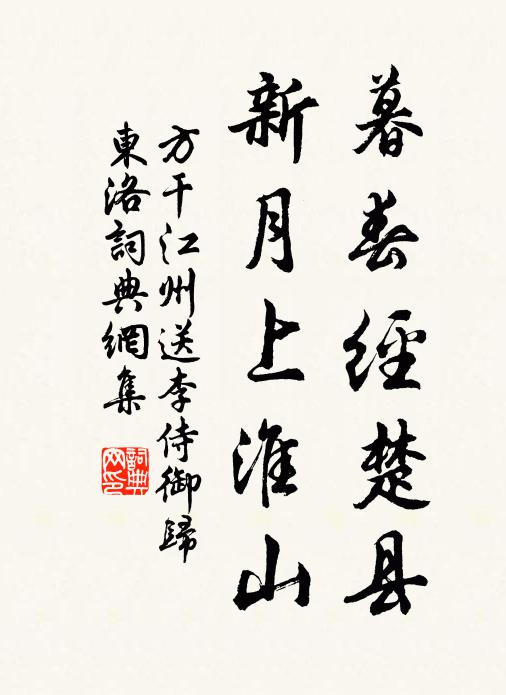 暮春經楚县
新月上淮山
方干江州送李侍御歸
東洛詞典網集
詞典网印